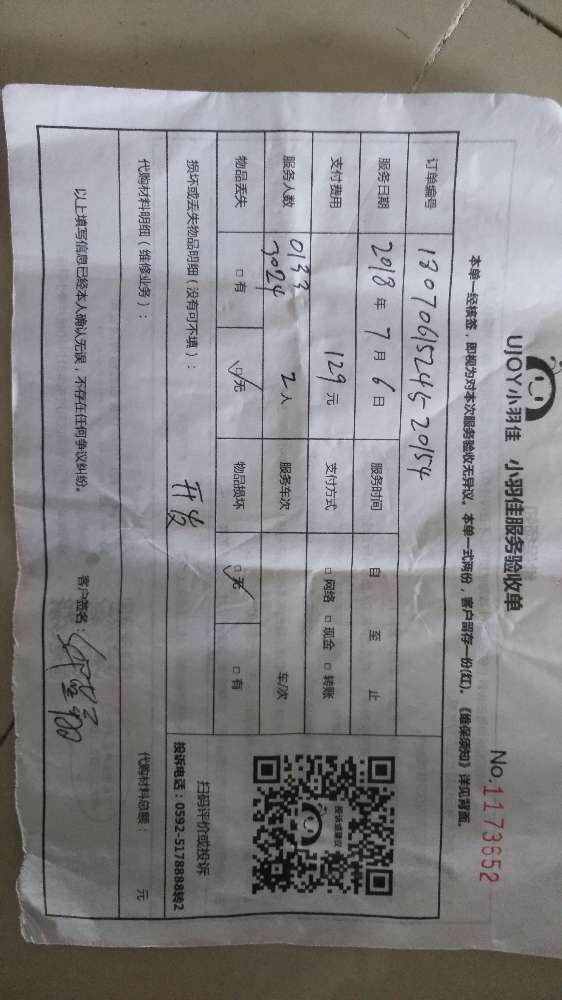 UJOY小羽佳 小羽佳服务验收单
No.1173652
本单一经核签，即视为对本次服务验收无异议。本单一式两份，客户留存一份(红)。《维保须知》详见背面。
订单编号 18070615245-20154
服务日期 2018 年 7 月 6 日 服务时间 自 至 止
支付费用 129 元 支付方式 □ 网络 □ 现金 □ 转账
服务人数 0133 3024 2 人 服务车次 车/次
物品丢失 □ 有 ☑ 无 物品损坏 ☑ 无 □ 有
损坏或丢失物品明细（没有可不填）：
代购材料明细（维修业务）： 代购材料总额： 元
以上填写信息已经本人确认无误，不存在任何争议纠纷。 客户签名：
投诉或建议
扫码评价或投诉
投诉电话：0592-5178888转2